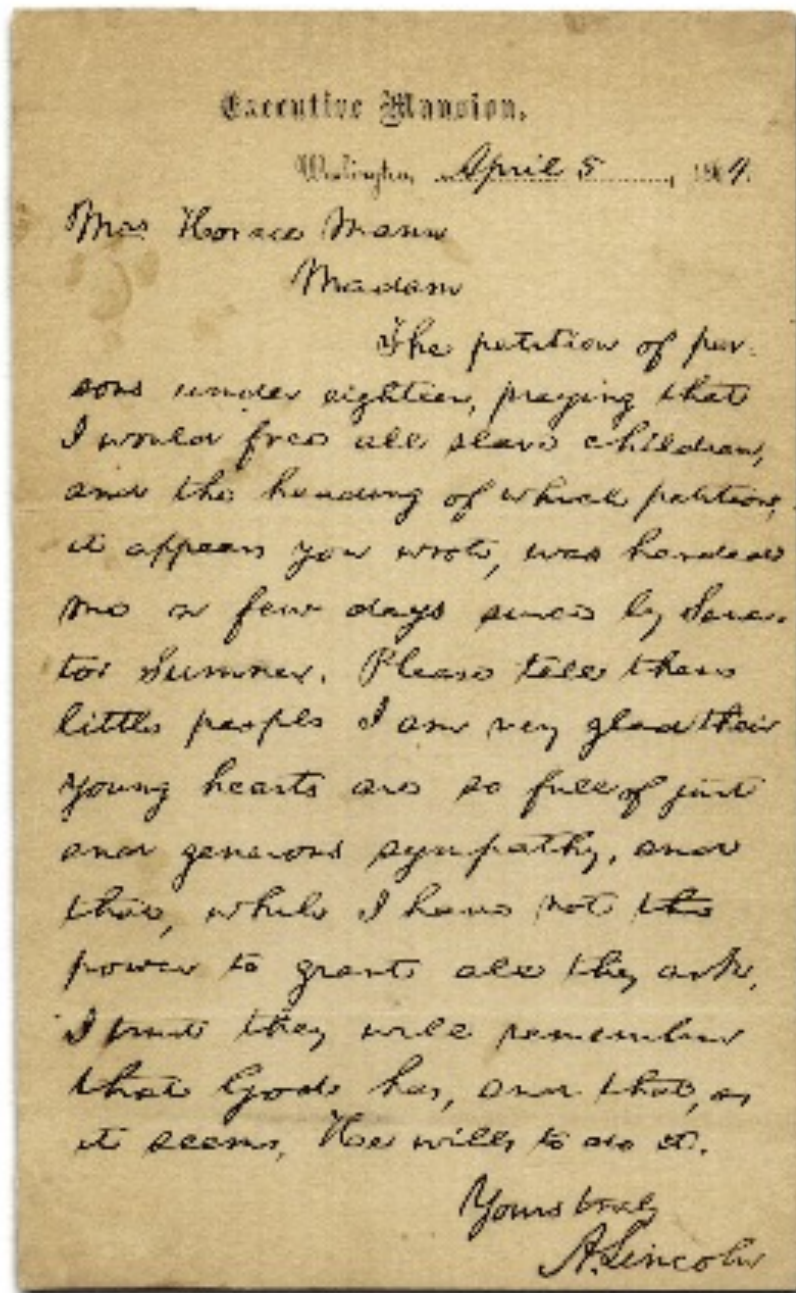 Executive Mansion,
Washington, April 5, 1864.
Mrs Horace Mann
Madam
The petition of per-
sons under eighteen, praying that
I would free all slave children,
and the heading of which petition,
it appears you wrote, was handed
me a few days since by Sena-
tor Sumner. Please tell these
little people I am very glad their
young hearts are so full of just
and generous sympathy, and
that, while I have not the
power to grant all they ask,
I trust they will remember
that God has, and that, as
it seems, He wills to do it.
Yours truly
A. Lincoln